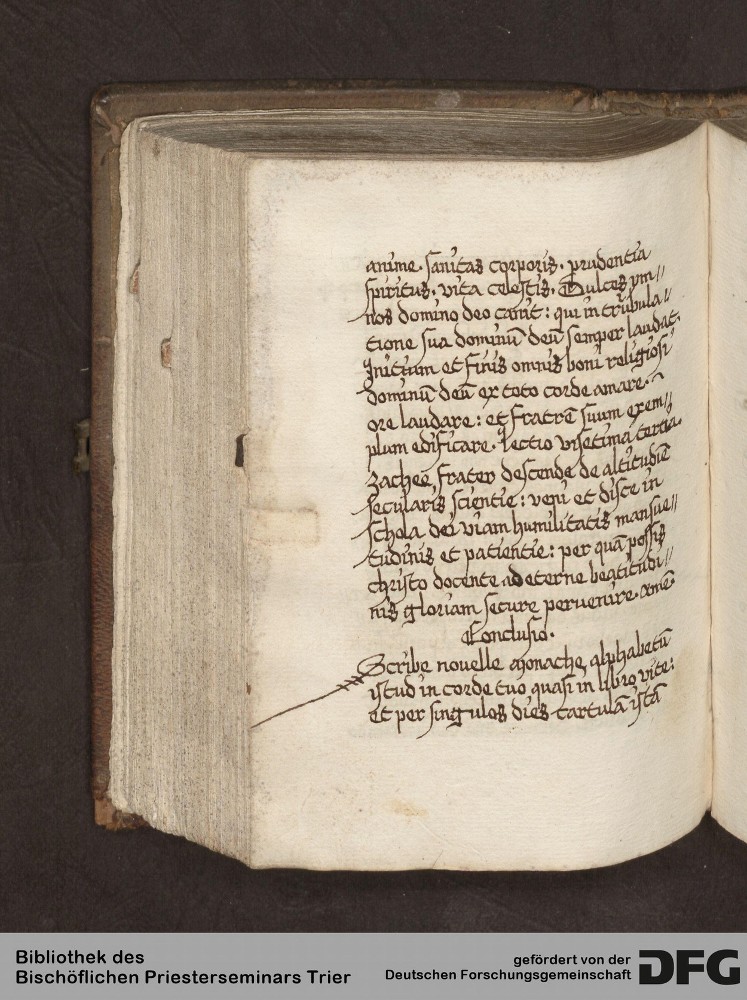 anime. sanitas corporis. prudentia
spiritus. vita celestis. Dulces ym//
nos domino deo canit: qui in tribula//
tione sua dominū deū semper laudat.
Initium et finis omnis boni religiosi
dominū deū ex toto corde amare.
ore laudare: et fratrē suum exem//
plum edificare. lectio visetima tercia.
Zachee, frater descende de altitudīe
secularis scientie: veni et disce in
schola dei viam humilitatis mansue//
tudinis et patientie: per quā possis
christo docente ad eterne beatitudi//
nis gloriam secure peruenire. amē.
Conclusio.
Scribe nouelle monache, alphabetū
istud in corde tuo quasi in libro vite:
et per singulos dies cartulā istā
Bibliothek des
Bischöflichen Priesterseminars Trier
gefördert von der
Deutschen Forschungsgemeinschaft
DFG